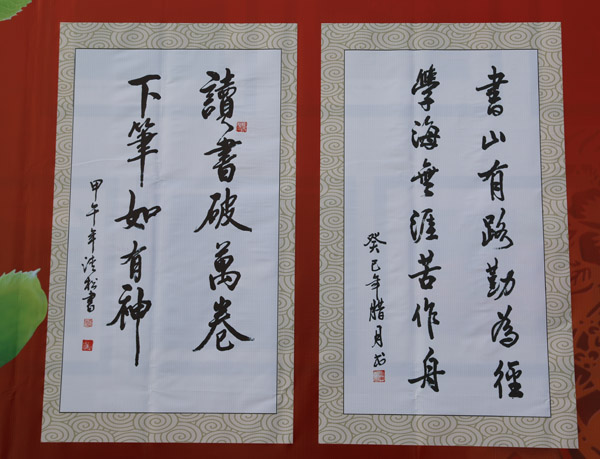 書山有路勤為徑
學海無涯苦作舟
癸巳年腊月書
讀書破萬卷
下筆如有神
甲午年洪松書